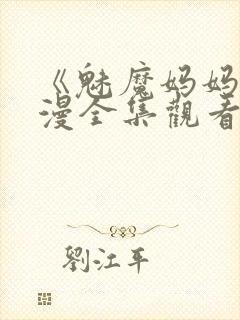 《魅魔妈妈
漫全集觀看
劉江平